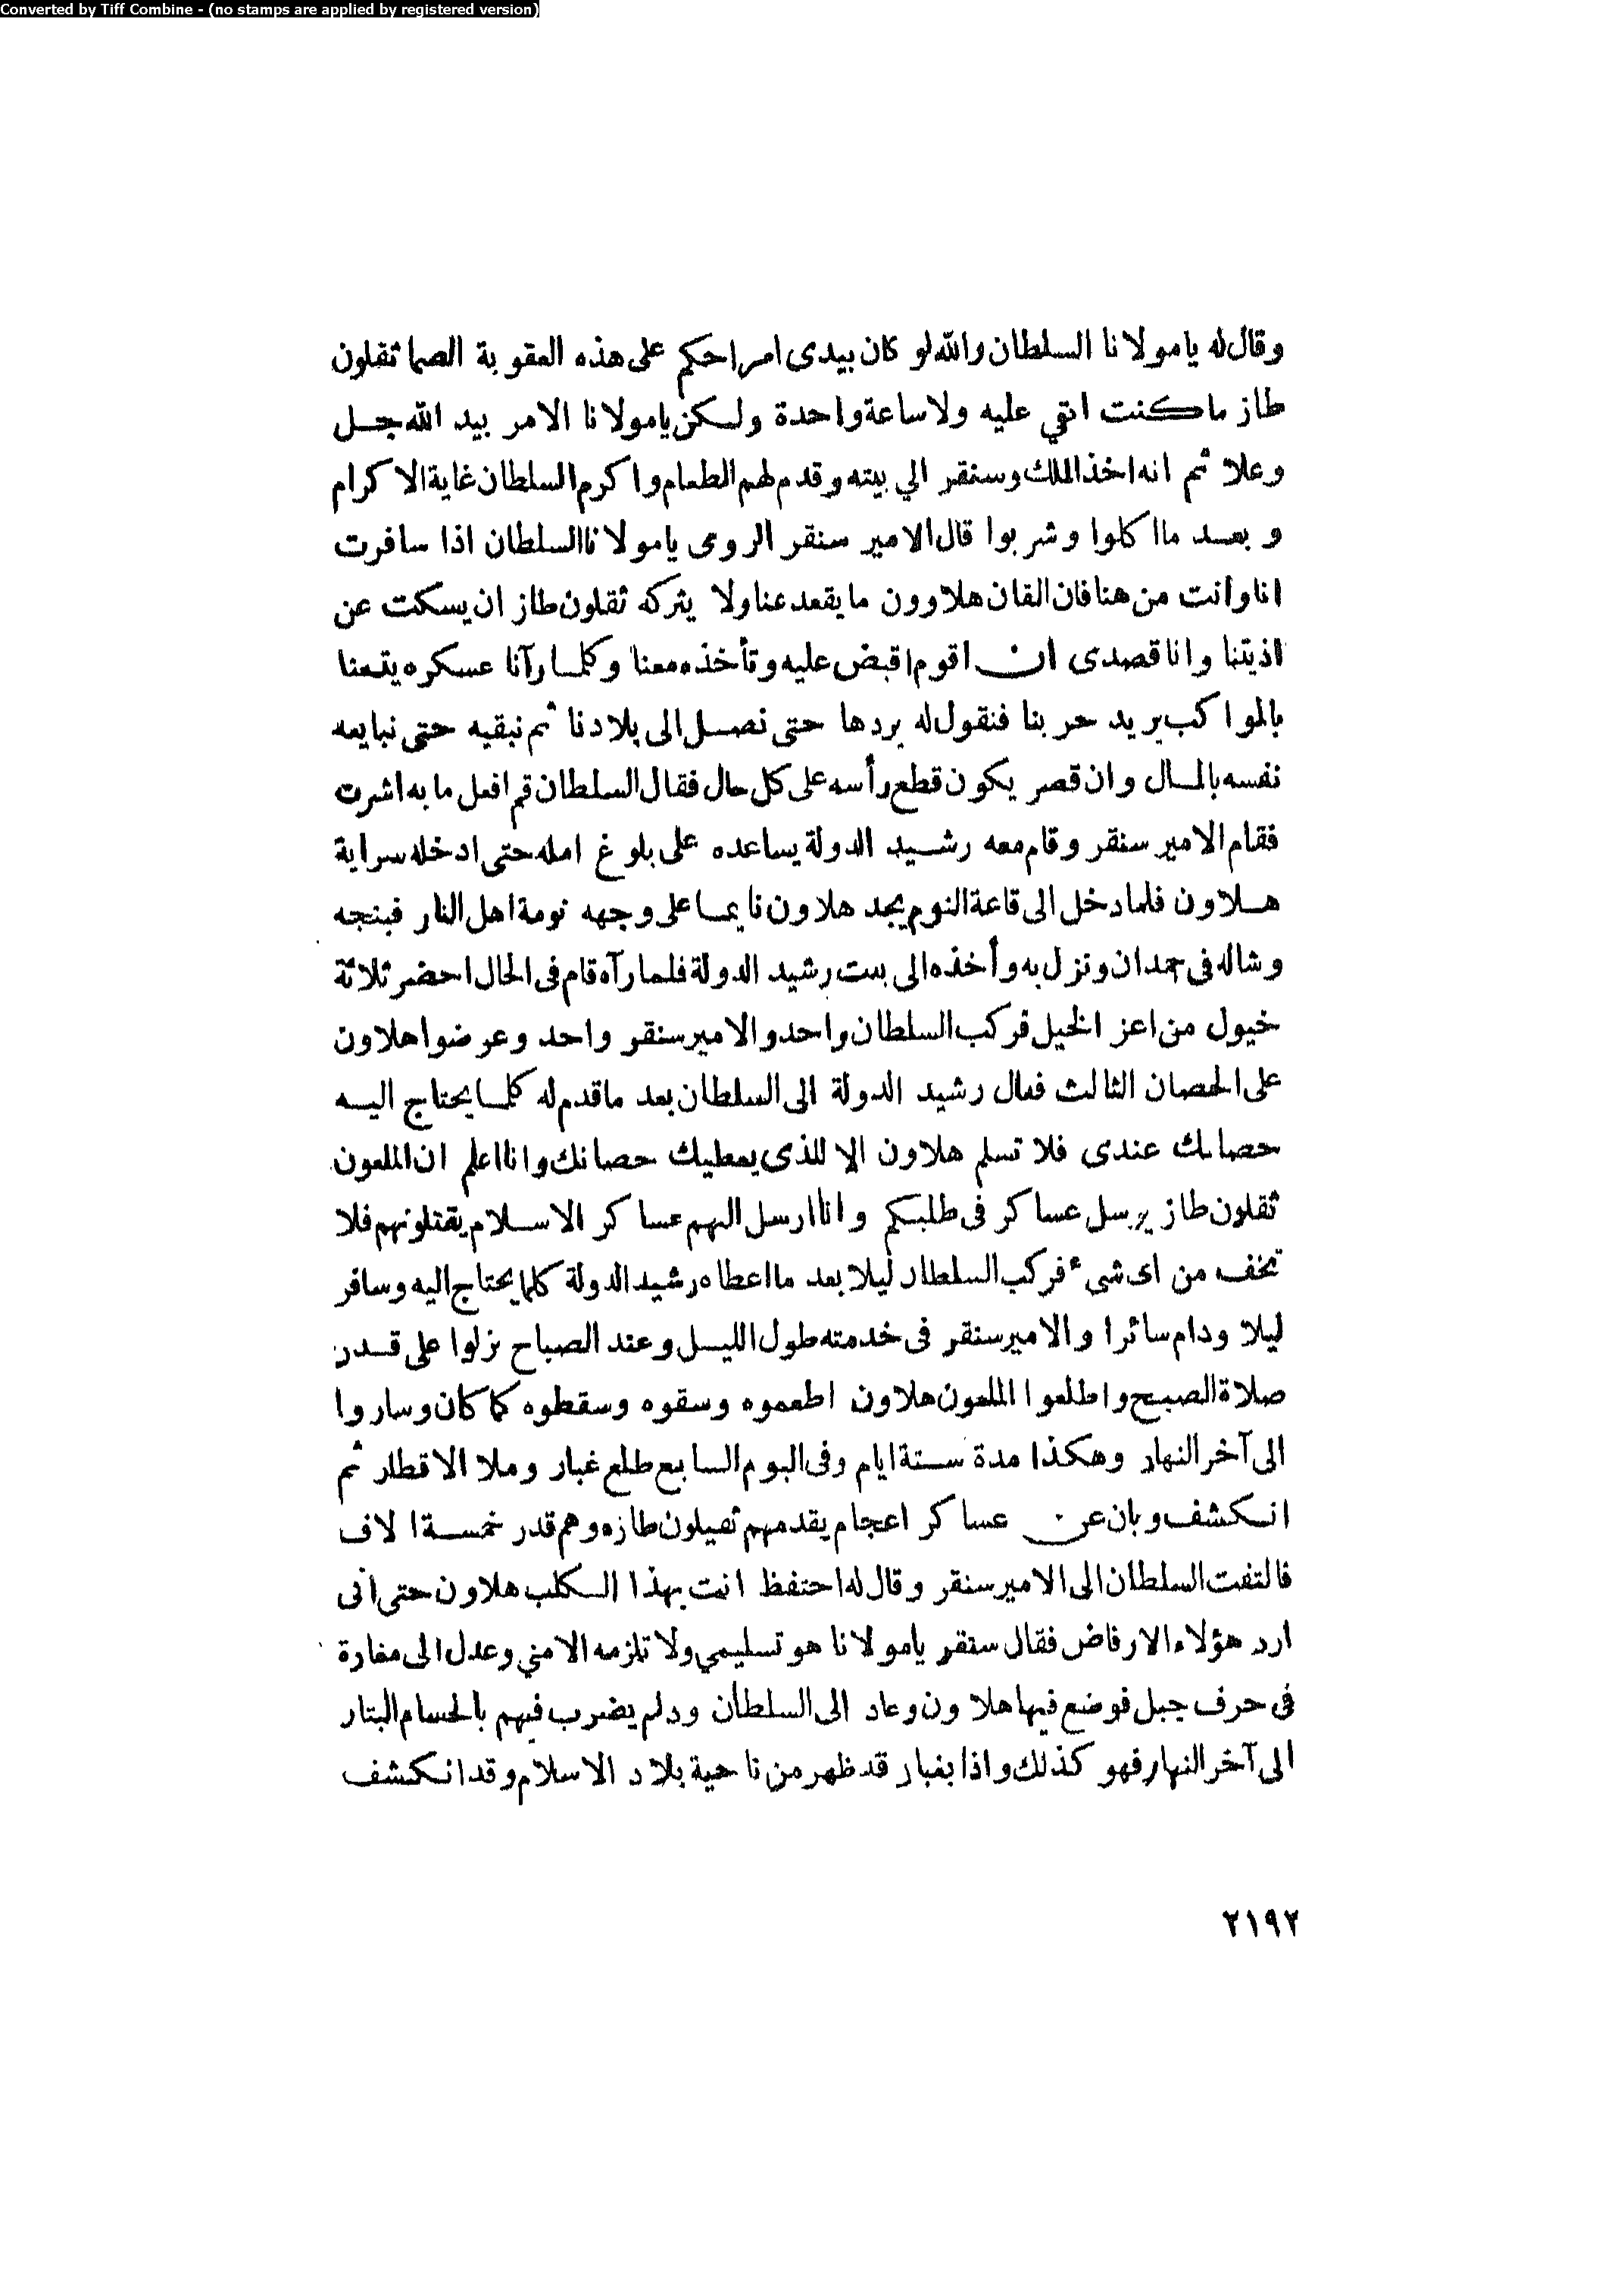 Converted by Tiff Combine - (no stamps are applied by registered version)
وقال له يا مولانا السلطان والله لو كان بيدى امر احكم على هذه العقوبة الصما ثقلون
طاز ما كنت ابقي عليه ولا ساعة واحدة ولكن يا مولانا الامر بيد الله جل
وعلا ثم انه اخذ الملك وسنقر الي بيته وقدم لهم الطعام واكرم السلطان غاية الاكرام
وبعد ما اكلوا وشربوا قال الامير سنقر الرومى يا مولانا السلطان اذا سافرت
انا وانت من هنا فان القان هلاوون ما يقعد عنا ولا يتركه ثقلون طاز ان يسكت عن
اذيتنا وانا قصدى ان اقوم اقبض عليه وتأخذه معنا وكلما رآنا عسكره يتبعنا
بالمواكب يريد حربنا فنقول له يردها حتى نصل الى بلادنا ثم نبقيه حتى نبايعه
نفسه بالمال وان قصر يكون قطع رأسه على كل حال فقال السلطان قم افعل ما به اشرت
فقام الامير سنقر وقام معه رشيد الدولة يساعده على بلوغ امله حتى ادخله سراية
هلاون فلما دخل الى قاعة النوم يجد هلاون نايما على وجهه نومة اهل النار فبنجه
وشاله فى جمدان ونزل به وأخذه الى بيت رشيد الدولة فلما رآه قام فى الحال احضر ثلاثة
خيول من اعز الخيل فركب السلطان واحد والامير سنقر واحد وعرضوا هلاون
على الحصان الثالث فقال رشيد الدولة الى السلطان بعد ما قدم له كلما يحتاج اليه
حصانك عندى فلا تسلم هلاون الا للذى يعطيك حصانك وانا اعلم ان الملعون
ثقلون طاز يرسل عساكر فى طلبكم وانا ارسل اليهم عساكر الاسلام يقتلونهم فلا
تخف من اى شىء فركب السلطان ليلا بعد ما اعطاه رشيد الدولة كلما يحتاج اليه وسافر
ليلا ودام سائرا والامير سنقر فى خدمته طول الليل وعند الصباح نزلوا على قدر
صلاة الصبح واطلعوا الملعون هلاون اطعموه وسقوه وسقطوه كما كان وساروا
الى آخر النهار وهكذا مدة ستة ايام وفى اليوم السابع طلع غبار وملا الاقطار ثم
انكشف وبان عن عساكر اعجام يقدمهم ثقيلون طازه وهم قدر خمسة الاف
فالتفت السلطان الى الامير سنقر وقال له احتفظ انت بهذا الكلب هلاون حتى انى
ارد هؤلاء الارفاض فقال سنقر يا مولانا هو تسليمي ولا تلزمه الا مني وعدل الى مغارة
فى حرف جبل فوضع فيها هلاون وعاد الى السلطان ودلم يضرب فيهم بالحسام البتار
الى آخر النهار فهو كذلك واذا بغبار قد ظهر من ناحية بلاد الاسلام وقد انكشف
٢١٩٢